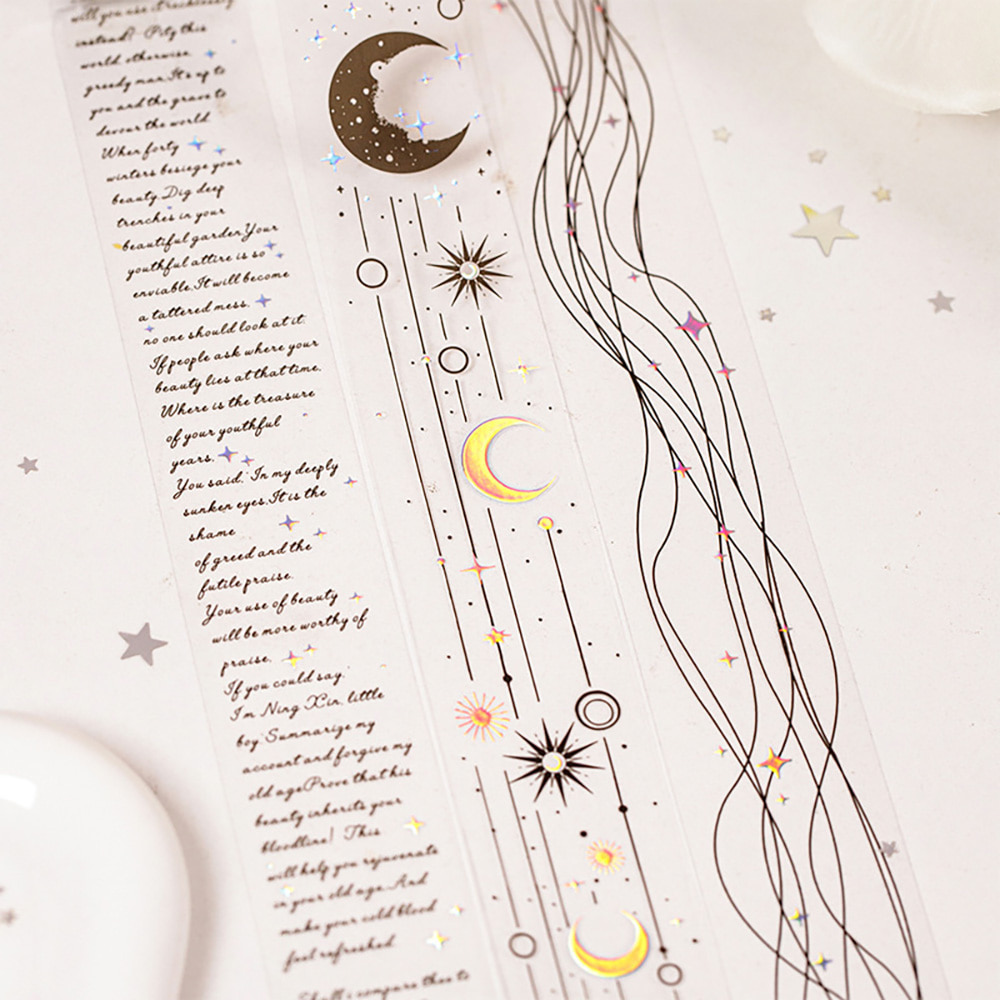 will you use it recklessly
instead?-Pity this
world, otherwise,
greedy man.It's up to
you and the grave to
devour the world
When forty
winters besiege your
beauty.Dig deep
trenches in your
beautiful garden.Your
youthful attire is so
enviable.It will become
a tattered mess.
no one should look at it.
If people ask where your
beauty lies at that time.
Where is the treasure
of your youthful
years.
You said. "In my deeply
sunken eyes.It is the
shame
of greed and the
futile praise.
Your use of beauty
will be more worthy of
praise.
If you could say.
I'm Ning Xin. little
boy Summarize my
account and forgive my
old age.Prove that his
beauty inherits your
bloodline! This
will help you rejuvenate
in your old age.And
make your cold blood
feel refreshed
Shall i compare thee to